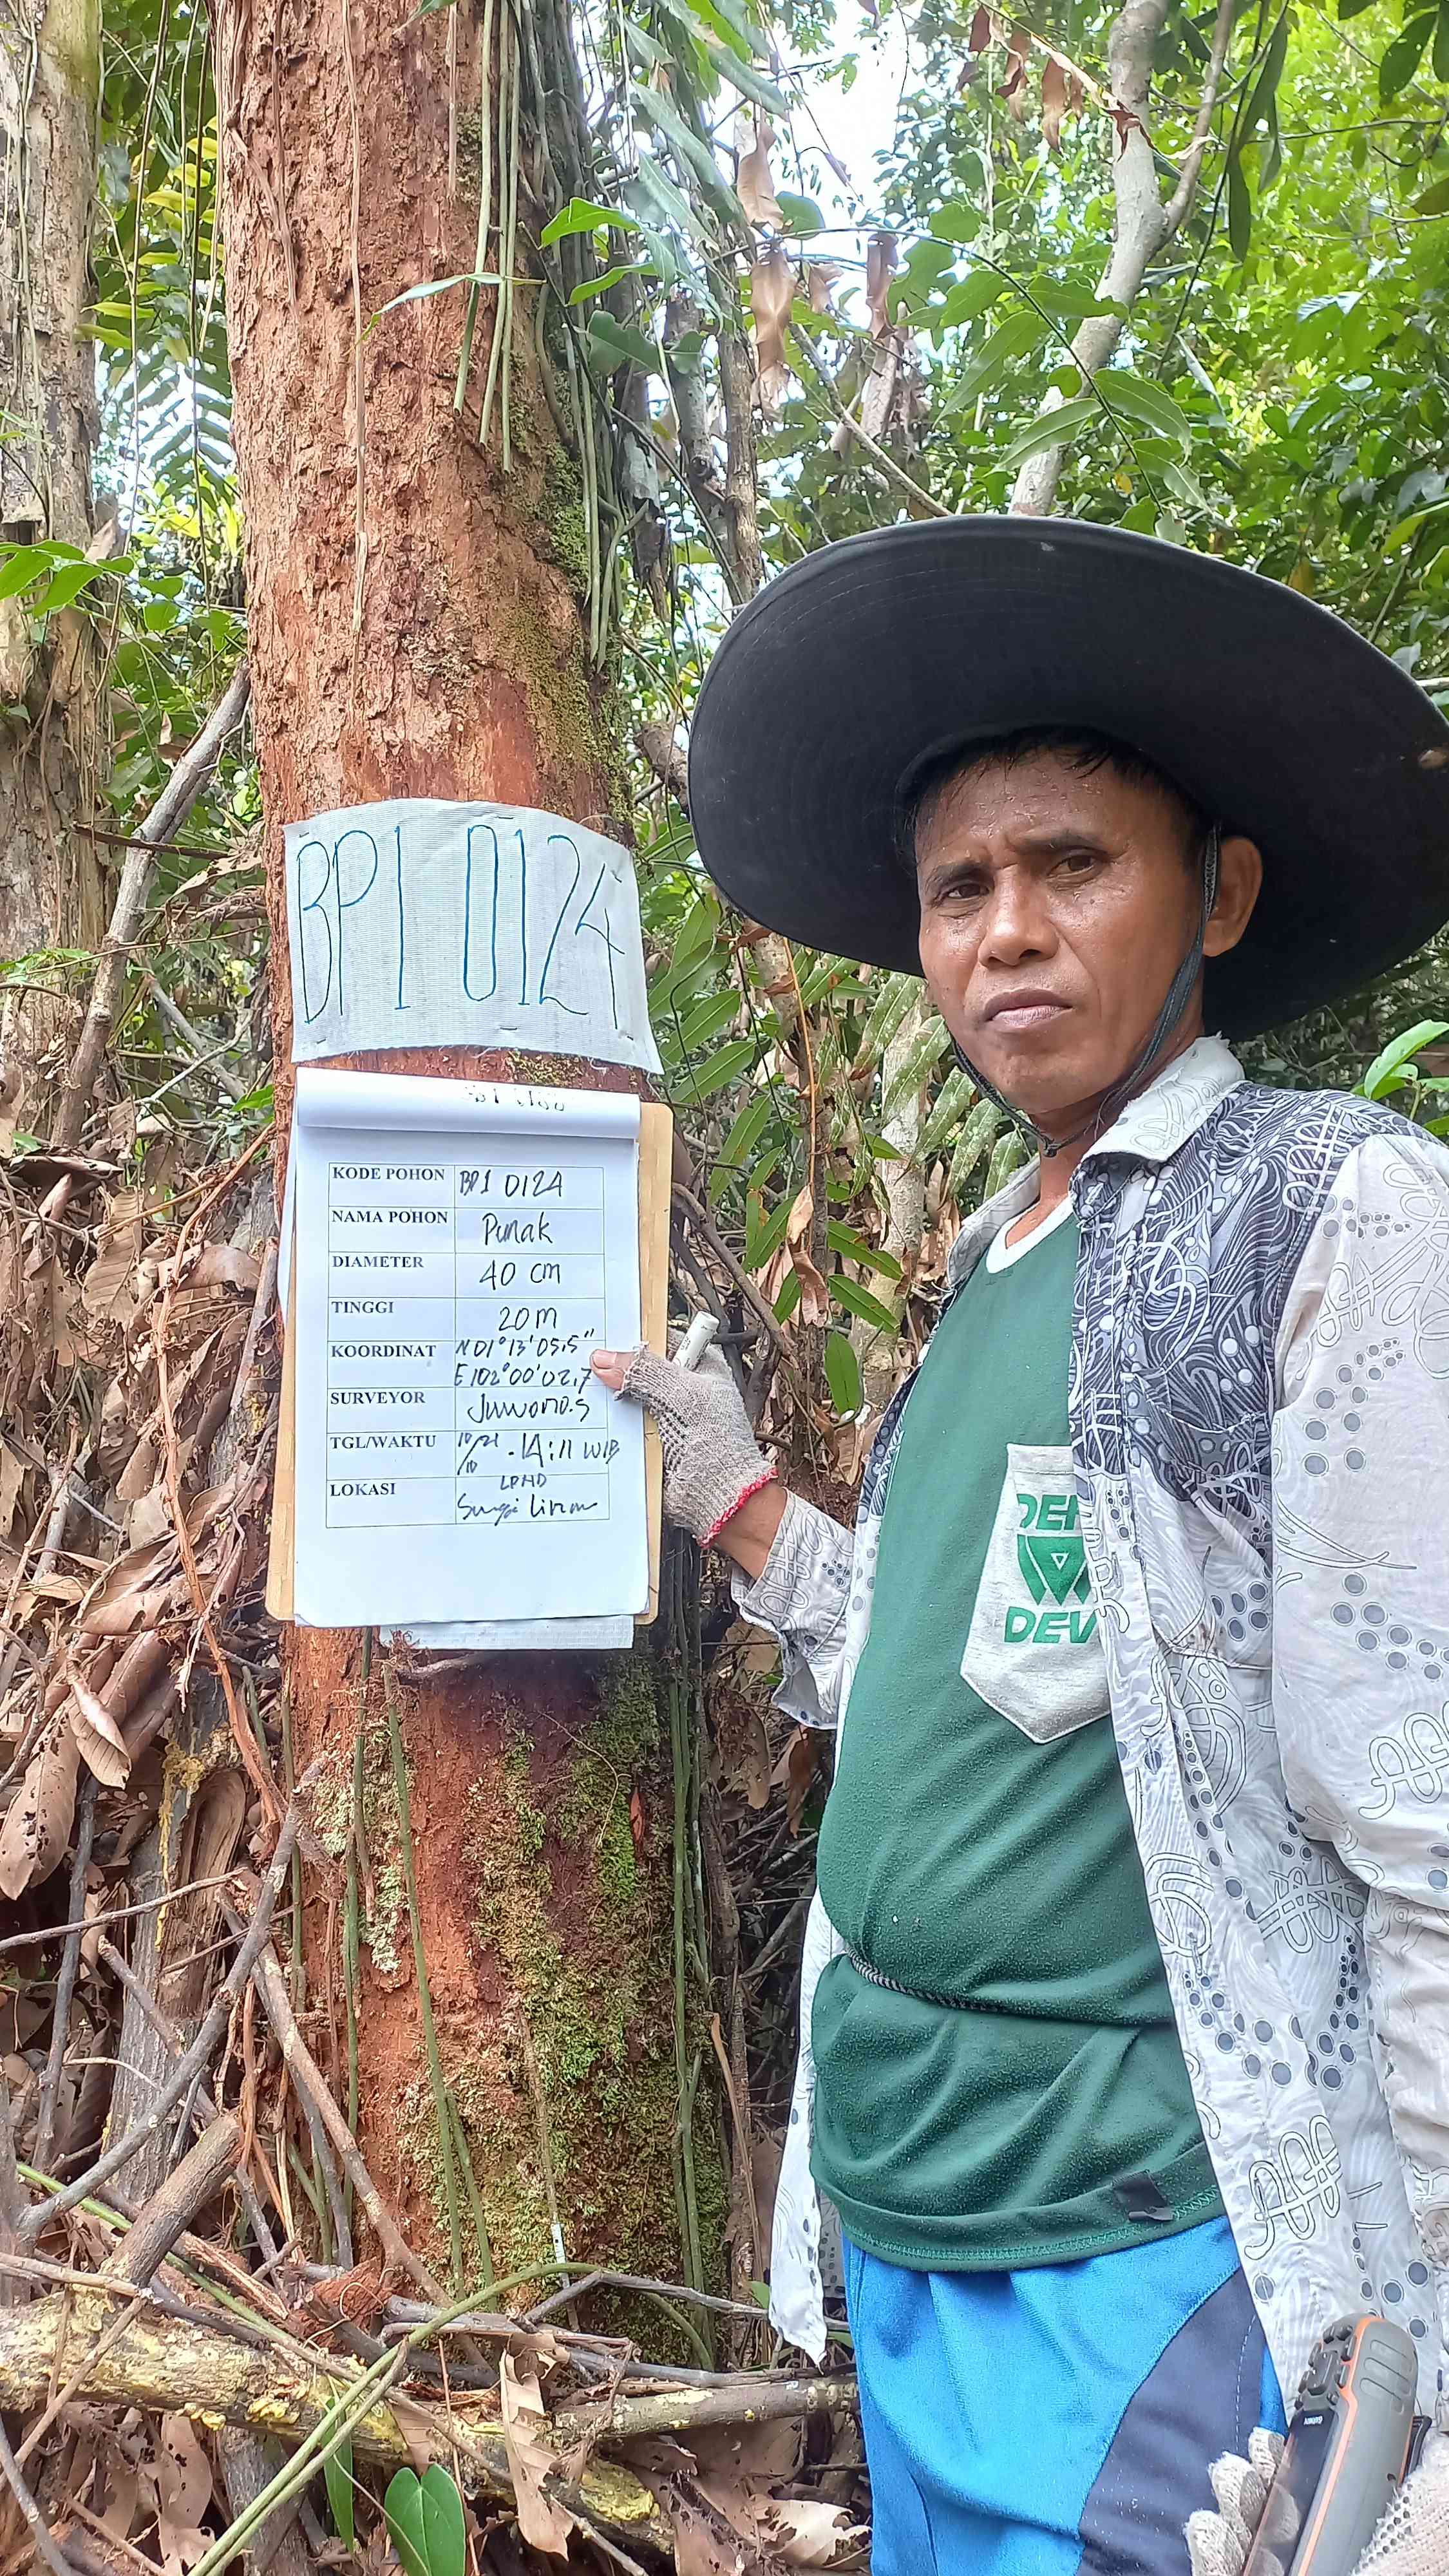 BP1 0124
KODE POHON BP1 0124
NAMA POHON Punak
DIAMETER 40 cm
TINGGI 20 m
KOORDINAT N 01°13'05,5"
E 102°00'02,7
SURVEYOR Juwono.S
TGL/WAKTU 10/21/10 . 14:11 WIB
LOKASI LPHD
Sungai Linau
DEV
GARMIN